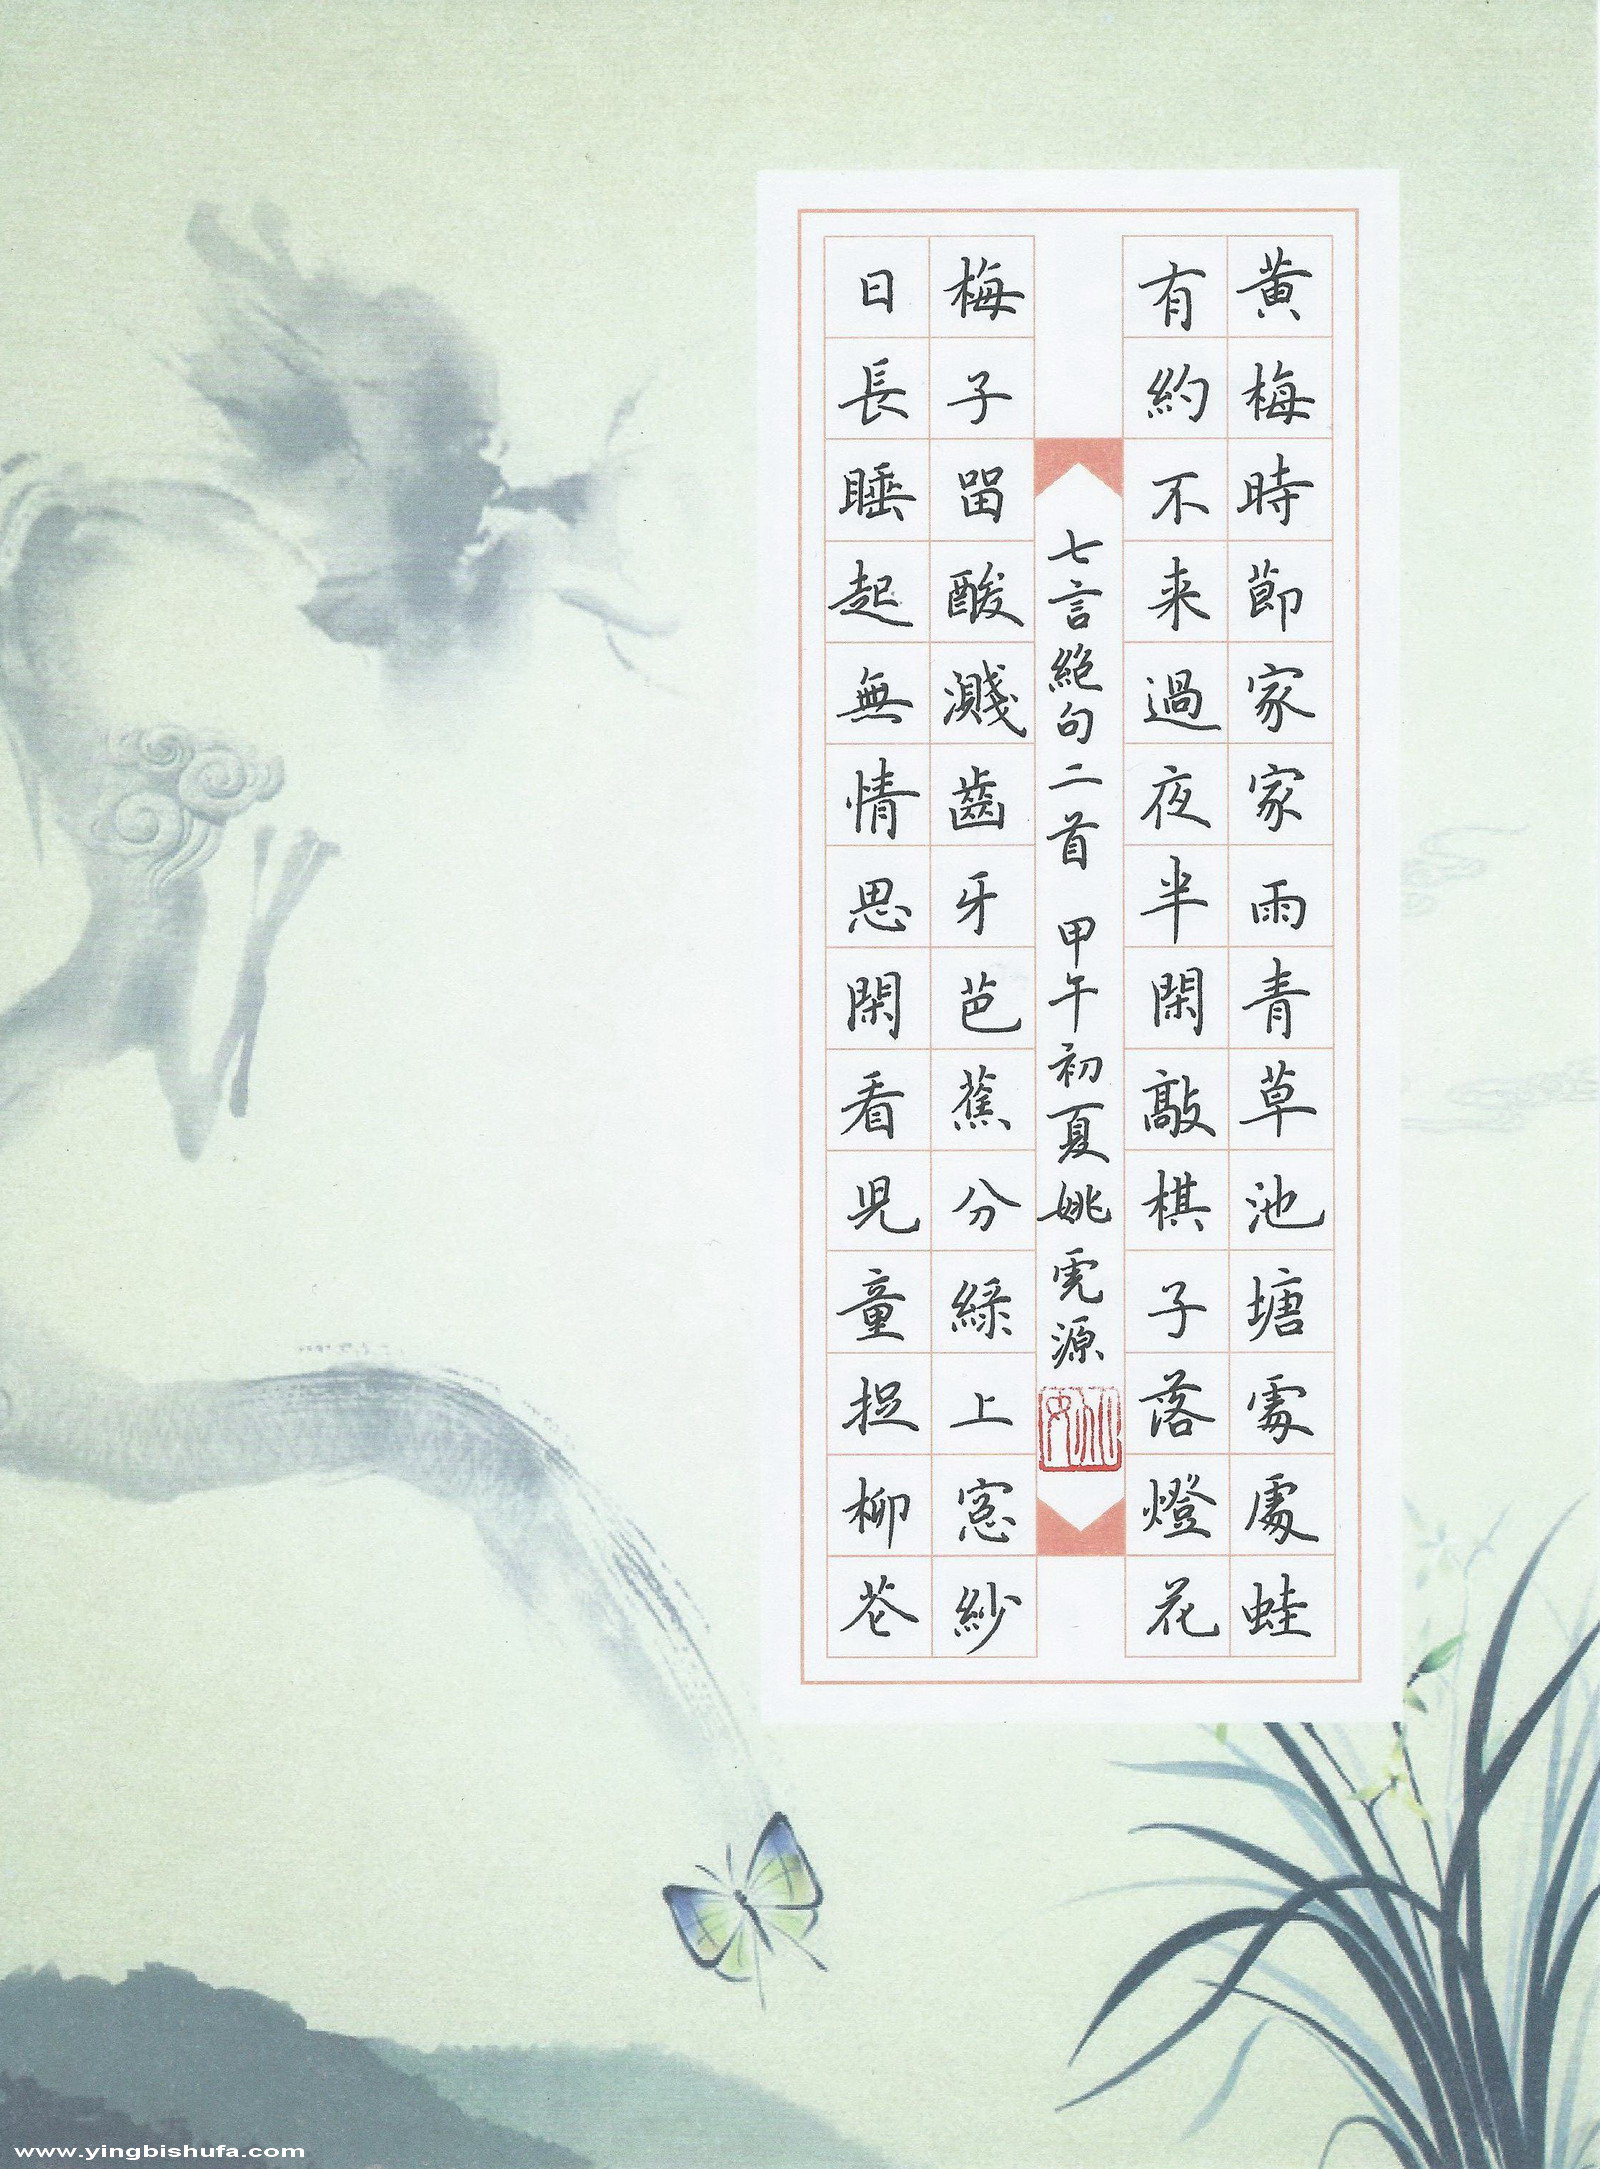 黄梅時節家家雨青草池塘處處蛙
有約不来過夜半閑敲棋子落燈花
七言絶句二首 甲午初夏姚虎源
梅子留酸濺齒牙芭蕉分綠上窓紗
日長睡起無情思閑看児童捉柳花
www.yingbishufa.com